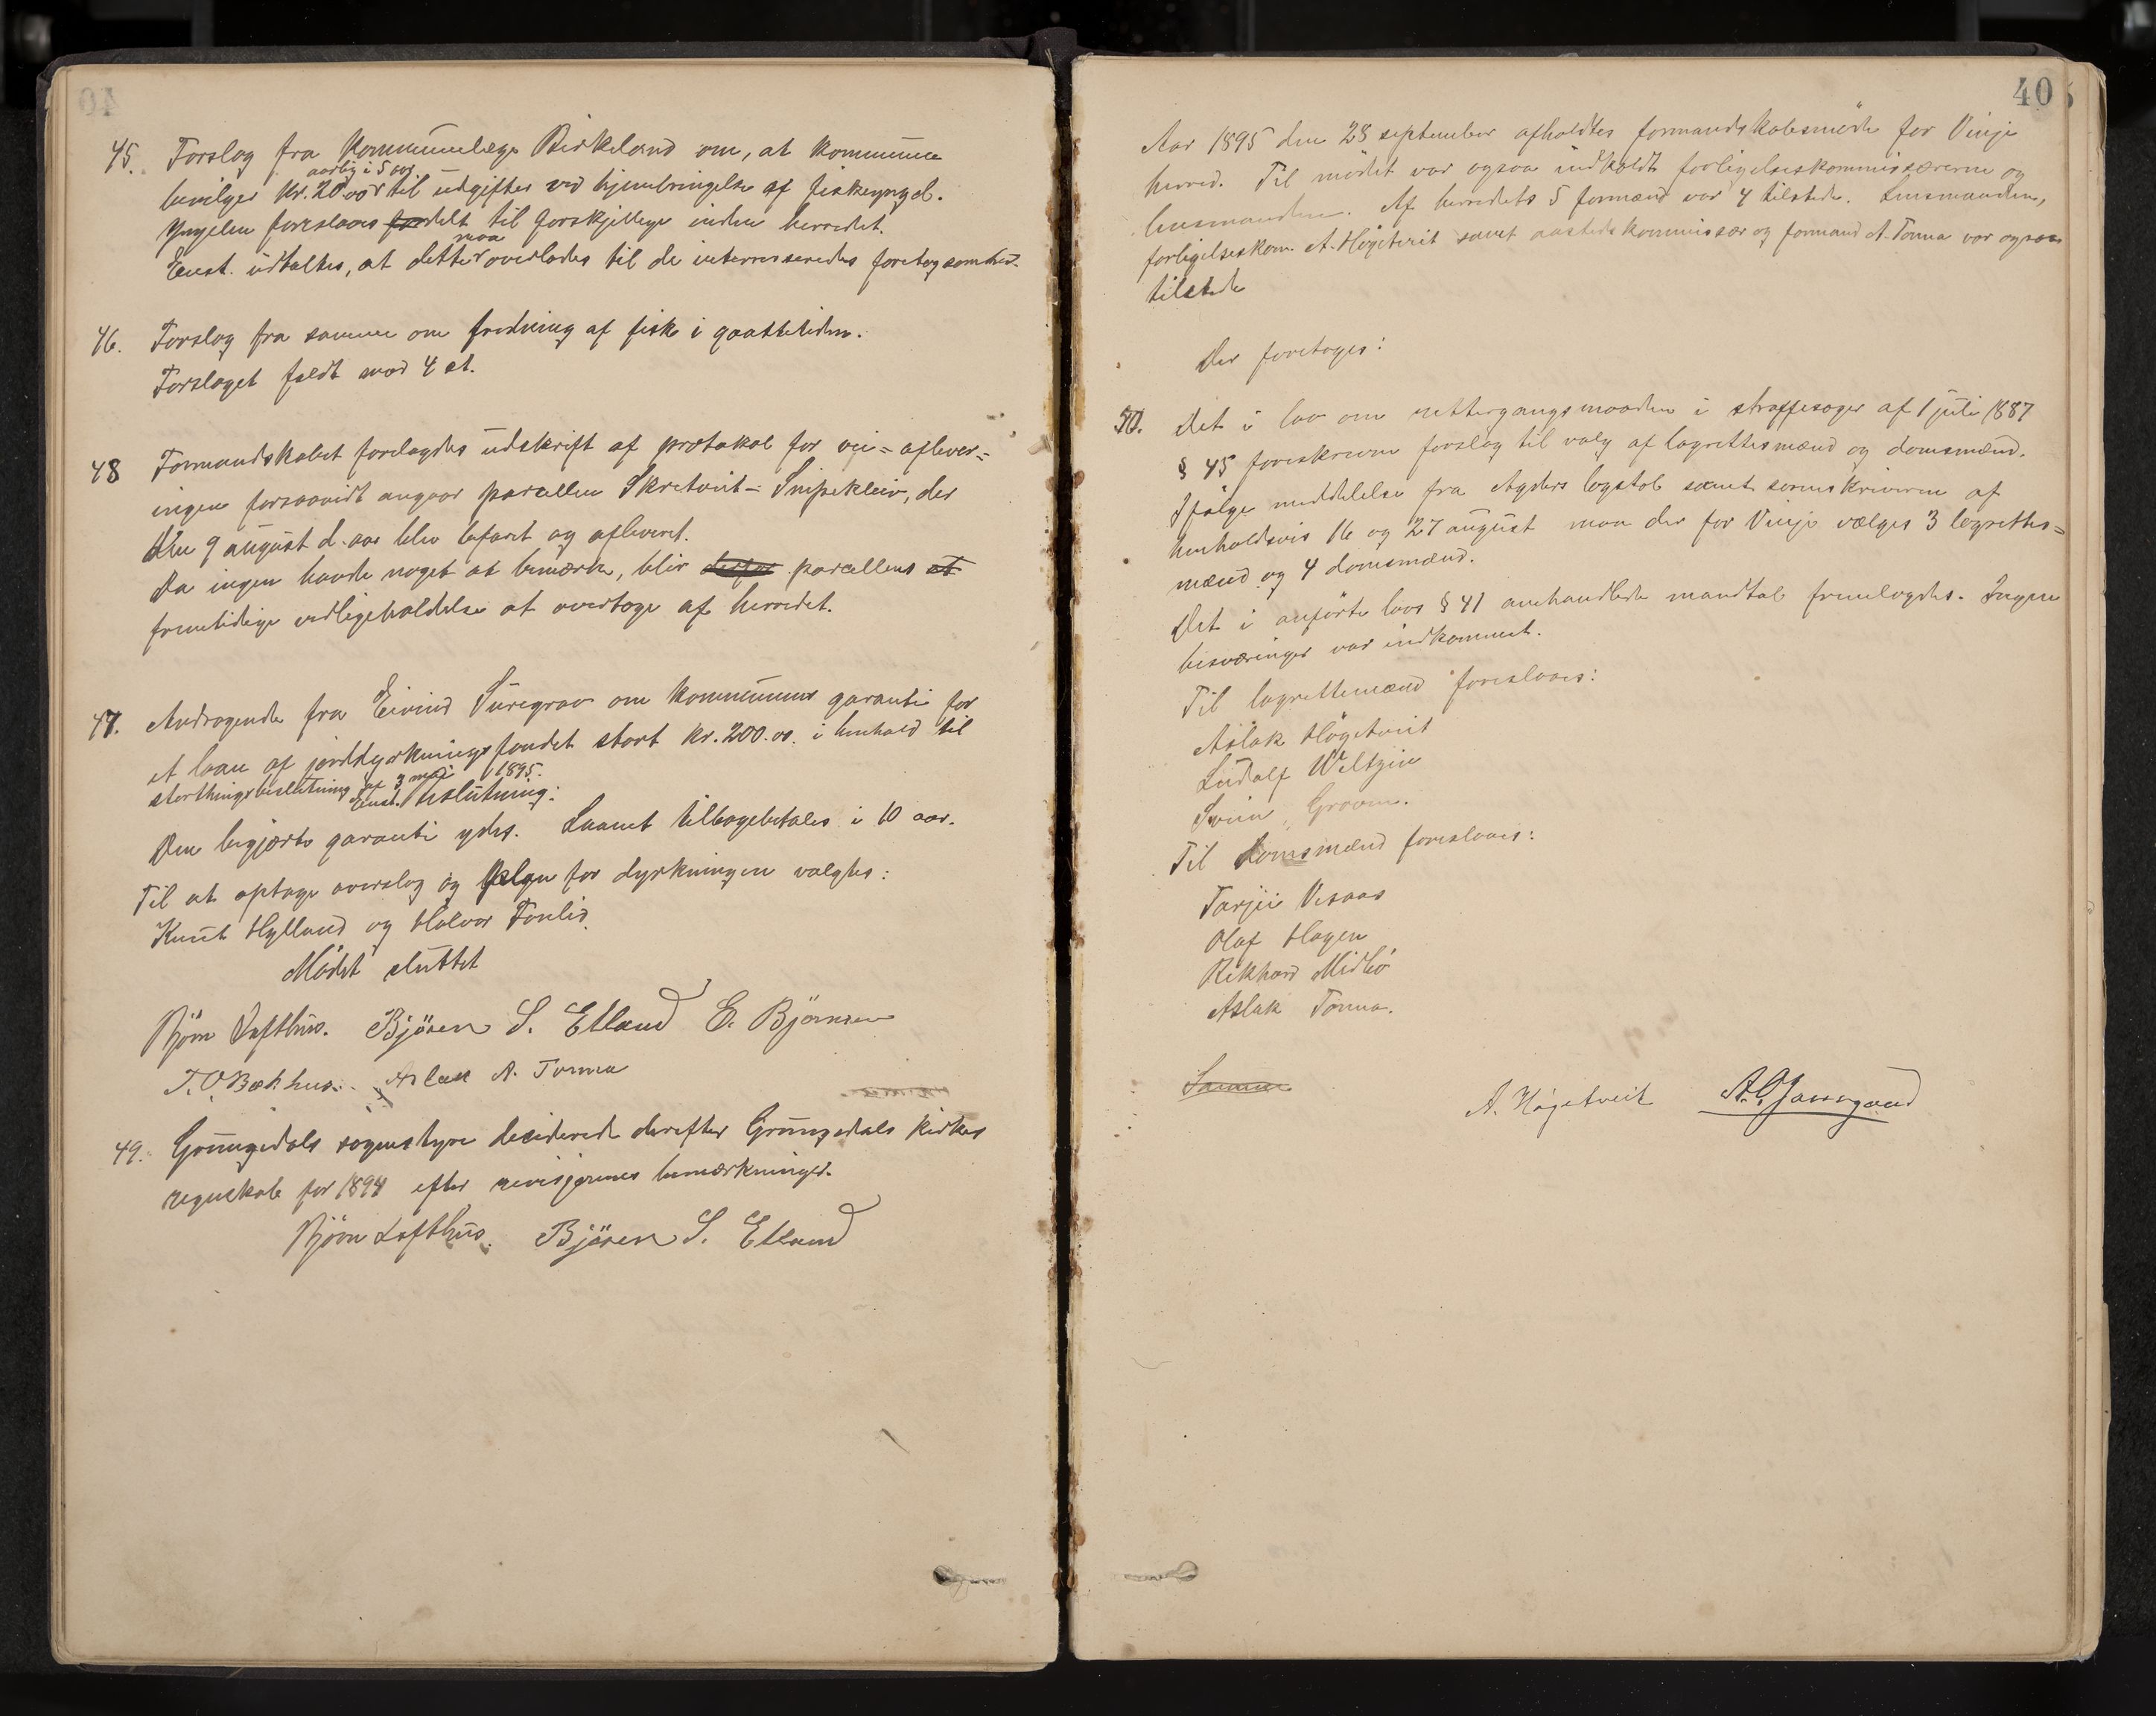 45. Forslag fra kommunelæge Birkeland om, at kommunen
aarlig i 5 aar
bevilger kr. 20.00 til udgifter ved hjembringelse af fiskeyngel.
Yngelen foreslaaes fordelt til forskjellige inden herredet.
maa
Enst. udtaltes, at dette overlades til de interesseredes foretagsomhed.
46. Forslag fra samme om fredning af fisk i gaattetiden.
Forslaget faldt mod 4 st.
48 Formandskabet forelagdes udskrift af protokol for vei-aflever-
ingen forsaavidt angaar parcellen Skretveit-Snipekleiv, der
den 9 august d. aar blev befaret og afleveret.
Da ingen havde noget at bemærke, blir derfor parcellens at
fremtidige vedligeholdelse at overtage af herredet.
47. Andragende fra Eivind Suregrav om kommunens garanti for
et laan af jorddyrkningsfondet stort kr. 200.00. i henhold til
storthingsbeslutning af 3 mai 1895.
Enst. beslutning:
Den begjærte garanti ydes. Laanet tilbagebetales i 10 aar.
Til at optage overslag og for dyrkningen valgtes:
Knut Hylland og Halvor Tonlid.
Mødet sluttet
Bjørn Lofthus. Björen S. Edland E. Björnsen
T. O. Bækhus. Aslak A. Tonna
49. Grungedals sognestyre desiderede derefter Grungedals kirkes
regnskab for 1894 efter revisjonens bemærkninger.
Bjørn Lofthus. Björen S. Edland
40
Aar 1895 den 28 september afholdtes formandskabsmøde for Vinje
herred. Til mødet var ogsaa indkaldt forligelseskommissærerne og
lensmanden. Af herredets 5 formænd var 4 tilstede. Lensmanden,
forligelseskom. A. Högetveit samt aastedskommissær og formand A. Tonna var ogsaa
tilstede
Der foretoges:
50. Det i lov om rettergangsmaaden i straffesager af 1 juli 1887
§ 45 foreskrevne forslag til valg af lagrettesmænd og domsmænd.
Ifølge meddelelse fra Agders lagstol samt sorenskriveren af
henholdsvis 16 og 27 august maa der for Vinje vælges 3 lagrettes-
mænd og 4 domsmænd.
Det i anførte lovs § 41 omhandlede mandtal fremlagdes. Ingen
besværinger var indkommet.
Til lagrettemænd foreslaaes:
Aslak Högetveit
Ludolf Weltzin
Svein Groven.
Til domsmænd foreslaaes:
Tarjei Vesaas
Olaf Hagen
Rikhard Midbö
Aslak Tonna.
Samme
A. Högetveit A. O. Jamsgaard